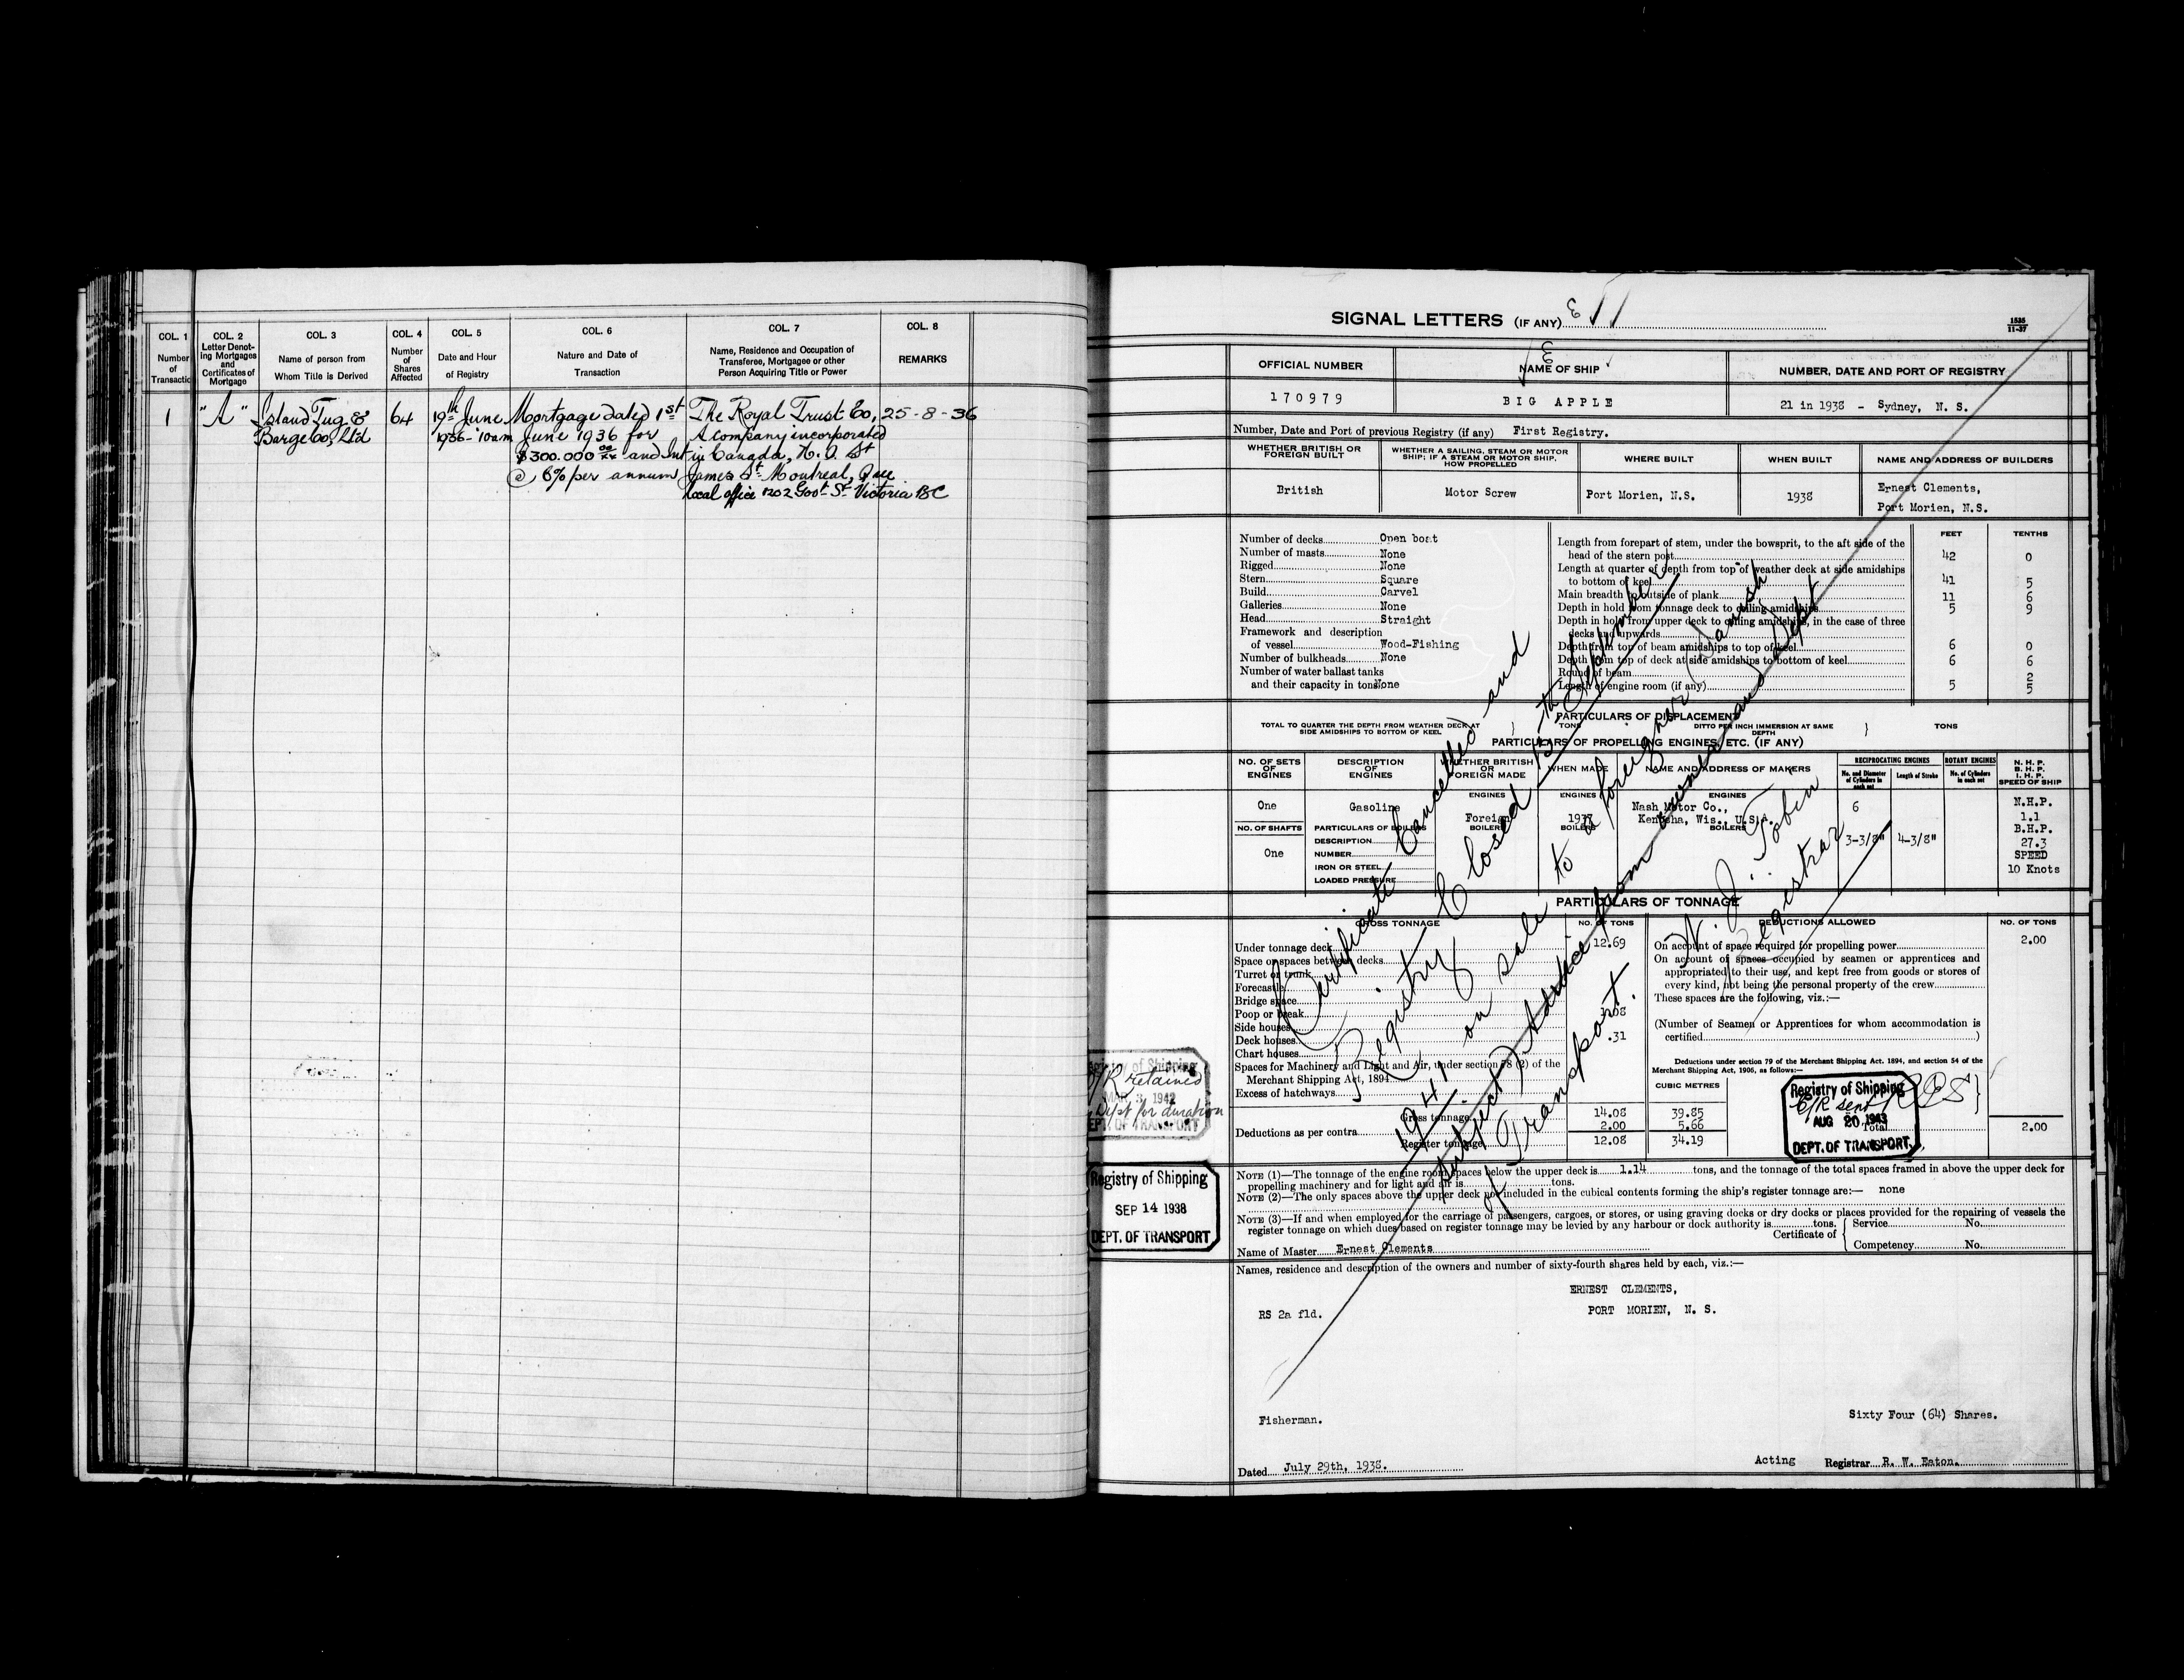 COL. 1 COL. 2 COL. 3 COL. 4 COL. 5 COL. 6 COL. 7 COL. 8
Number of Transactio
Letter Denot-ing Mortgages and Certificates of Mortgage
Name of person from Whom Title is Derived
Number of Shares Affected
Date and Hour of Registry
Nature and Date of Transaction
Name, Residence and Occupation of Transferee, Mortgagee or other Person Acquiring Title or Power
REMARKS
1 "A" Island Tug & 64 19th June Mortgage dated 1st The Royal Trust Co, 25-8-36
Barge Co, Ltd 1936-10am June 1936 for A company incorporated
$300.000 00/xx and Int in Canada,
@ 6% per annum James St Montreal, Que
local office 1202 Govt St Victoria BC
SIGNAL LETTERS (IF ANY)
1535
11-37
OFFICIAL NUMBER NAME OF SHIP NUMBER, DATE AND PORT OF REGISTRY
170979 BIG APPLE 21 in 1938 - Sydney, N. S.
Number, Date and Port of previous Registry (if any) First Registry.
WHETHER BRITISH OR FOREIGN BUILT
WHETHER A SAILING, STEAM OR MOTOR SHIP; IF A STEAM OR MOTOR SHIP, HOW PROPELLED
WHERE BUILT WHEN BUILT NAME AND ADDRESS OF BUILDERS
British Motor Screw Port Morien, N.S. 1938 Ernest Clements,
Port Morien, N.S.
Number of decks Open boat
Number of masts None
Rigged None
Stern Square
Build Carvel
Galleries None
Head Straight
Framework and description
of vessel Wood-Fishing
Number of bulkheads None
Number of water ballast tanks
and their capacity in tons None
FEET TENTHS
Length from forepart of stem, under the bowsprit, to the aft side of the
head of the stern post 42 0
Length at quarter of depth from top of weather deck at side amidships
to bottom of keel 41 5
Main breadth to outside of plank 11 6
Depth in hold from tonnage deck to ceiling amidships 5 9
Depth in hold from upper deck to ceiling amidships, in the case of three
decks and upwards
Depth from top of beam amidships to top of keel 6 0
Depth from top of deck at side amidships to bottom of keel 6 6
Round of beam 2
Length of engine room (if any) 5 5
PARTICULARS OF DISPLACEMENT
TOTAL TO QUARTER THE DEPTH FROM WEATHER DECK AT SIDE AMIDSHIPS TO BOTTOM OF KEEL } TONS DITTO PER INCH IMMERSION AT SAME DEPTH } TONS
PARTICULARS OF PROPELLING ENGINES, ETC. (IF ANY)
NO. OF SETS OF ENGINES
DESCRIPTION OF ENGINES
WHETHER BRITISH OR FOREIGN MADE
WHEN MADE
NAME AND ADDRESS OF MAKERS
RECIPROCATING ENGINES
No. and Diameter of Cylinders in each set
Length of Stroke
ROTARY ENGINES
No. of Cylinders in each set
N. H. P.
B. H. P.
I. H. P.
SPEED OF SHIP
ENGINES ENGINES ENGINES
One Gasoline Foreign 1937 Nash Motor Co.,
Kenosha, Wis., U.S.A.
6
3-3/8" 4-3/8"
N.H.P.
1.1
B.H.P.
27.3
SPEED
10 Knots
NO. OF SHAFTS
One
PARTICULARS OF BOILERS BOILERS BOILERS BOILERS
DESCRIPTION
NUMBER
IRON OR STEEL
LOADED PRESSURE
PARTICULARS OF TONNAGE
GROSS TONNAGE NO. OF TONS DEDUCTIONS ALLOWED NO. OF TONS
Under tonnage deck 12.69
Space or spaces between decks
Turret or trunk
Forecastle
Bridge space
Poop or break 1.08
Side houses
Deck houses .31
Chart houses
Spaces for Machinery and Light and Air, under section 78 (2) of the
Merchant Shipping Act, 1894
Excess of hatchways
CUBIC METRES
Gross tonnage 14.08 39.85
Deductions as per contra 2.00 5.66
Register tonnage 12.08 34.19
On account of space required for propelling power 2.00
On account of spaces occupied by seamen or apprentices and
appropriated to their use, and kept free from goods or stores of
every kind, not being the personal property of the crew
These spaces are the following, viz.:—
(Number of Seamen or Apprentices for whom accommodation is
certified )
Deductions under section 79 of the Merchant Shipping Act. 1894, and section 54 of the
Merchant Shipping Act, 1906, as follows:—
Registry of Shipping
C/R sent
AUG 20 1943
DEPT. OF TRANSPORT
Total 2.00
Certificate Cancelled and
Registry Closed 15th September
1941 on sale to a foreigner
Subject Advice from owners and Dept
of Transport.
Tobin
Registrar
Registry of Shipping
C/R retained
MAR 3 1942
Dept for duration
DEPT. OF TRANSPORT
Registry of Shipping
SEP 14 1938
DEPT. OF TRANSPORT
NOTE (1)—The tonnage of the engine room spaces below the upper deck is 1.14 tons, and the tonnage of the total spaces framed in above the upper deck for
propelling machinery and for light and air is tons.
NOTE (2)—The only spaces above the upper deck not included in the cubical contents forming the ship's register tonnage are:— none
NOTE (3)—If and when employed for the carriage of passengers, cargoes, or stores, or using graving docks or dry docks or places provided for the repairing of vessels the
register tonnage on which dues based on register tonnage may be levied by any harbour or dock authority is tons.
Certificate of { Service No.
Competency No.
Name of Master Ernest Clements
Names, residence and description of the owners and number of sixty-fourth shares held by each, viz.:—
ERNEST CLEMENTS,
PORT MORIEN, N. S.
RS 2a fld.
Fisherman. Sixty Four (64) Shares.
Dated July 29th, 1938. Acting Registrar R. W. Eaton.